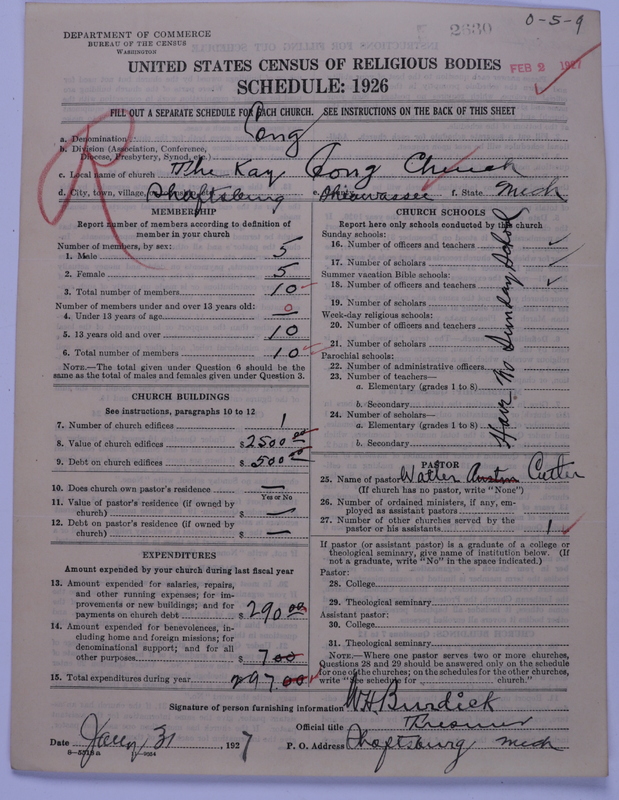 0-5-9
2630
DEPARTMENT OF COMMERCE
BUREAU OF THE CENSUS
WASHINGTON
UNITED STATES CENSUS OF RELIGIOUS BODIES
FEB 2 1927
SCHEDULE: 1926
FILL OUT A SEPARATE SCHEDULE FOR EACH CHURCH. SEE INSTRUCTIONS ON THE BACK OF THIS SHEET
R
a. Denomination Cong
b. Division (Association, Conference, Diocese, Presbytery, Synod, etc.)
c. Local name of church The Kay Cong Church
d. City, town, village, Shaftsburg e. County Shiawassee f. State Mich
MEMBERSHIP
Report number of members according to definition of member in your church
Number of members, by sex:
1. Male 5
2. Female 5
3. Total number of members 10
Number of members under and over 13 years old:
4. Under 13 years of age 0 —
5. 13 years old and over 10
6. Total number of members 10
NOTE.—The total given under Question 6 should be the same as the total of males and females given under Question 3.
CHURCH BUILDINGS
See instructions, paragraphs 10 to 12
7. Number of church edifices 1
8. Value of church edifices $ 2500 00
9. Debt on church edifices $ 500 00
10. Does church own pastor's residence —
Yes or No
11. Value of pastor's residence (if owned by church) $ —
12. Debt on pastor's residence (if owned by church) $ —
EXPENDITURES
Amount expended by your church during last fiscal year
13. Amount expended for salaries, repairs, and other running expenses; for improvements or new buildings; and for payments on church debt $ 290 00
14. Amount expended for benevolences, including home and foreign missions; for denominational support; and for all other purposes $ 7 00
15. Total expenditures during year 297.00
CHURCH SCHOOLS
Report here only schools conducted by the church
Sunday schools:
16. Number of officers and teachers
17. Number of scholars
Summer vacation Bible schools:
18. Number of officers and teachers
19. Number of scholars
Week-day religious schools:
20. Number of officers and teachers
21. Number of scholars
Parochial schools:
22. Number of administrative officers
23. Number of teachers—
a. Elementary (grades 1 to 8)
b. Secondary
24. Number of scholars—
a. Elementary (grades 1 to 8)
b. Secondary
Have No Sunday School
PASTOR
25. Name of pastor Walter Austin Cutler
(If church has no pastor, write "None")
26. Number of ordained ministers, if any, employed as assistant pastors
27. Number of other churches served by the pastor or his assistants 1
If pastor (or assistant pastor) is a graduate of a college or theological seminary, give name of institution below. (If not a graduate, write "No" in the space indicated.)
Pastor:
28. College
29. Theological seminary
Assistant pastor:
30. College
31. Theological seminary
NOTE.—Where one pastor serves two or more churches, Questions 28 and 29 should be answered only on the schedule for one of the churches; on the schedules for the other churches, write "See schedule for church."
Signature of person furnishing information W H Burdick
Official title Tresurer
Date Jany 31, 1927 P. O. Address Shaftsburg Mich